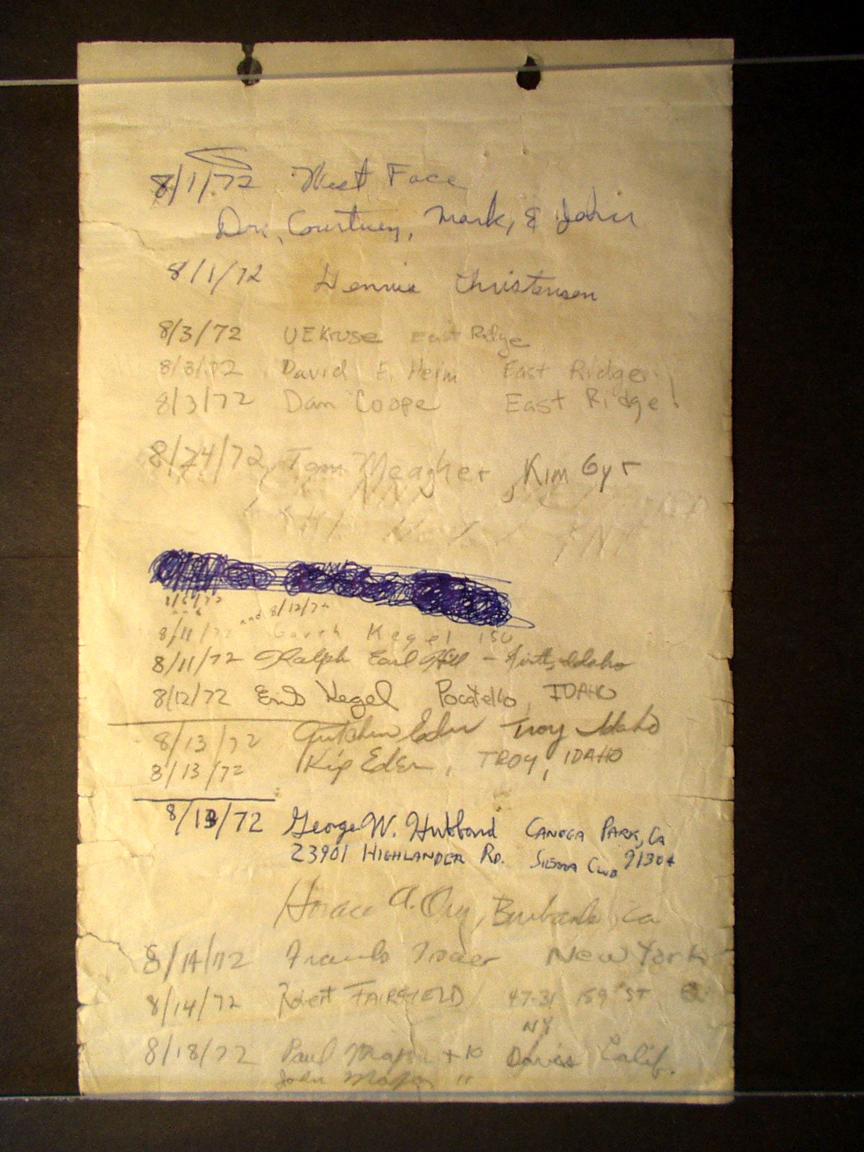 8/1/72 West Face
Don, Courtney, Mark, & John
8/1/72 Dennis Christensen
8/3/72 UEKruse East Ridge
8/3/72 David E. Heim East Ridge!
8/3/72 Dan Coope East Ridge!
8/24/72 Tom Meagher, Kim 6yr
and 8/12/72
8/11/72 Garth Kegel
8/11/72 Ralph Earl Hill - Firth, Idaho
8/12/72 Kegel Pocatello, IDAHO
8/13/72 Gretchen Eder Troy Idaho
8/13/72 Kip Eder, TROY, IDAHO
8/13/72 George W. Hubbard CANOGA PARK, Ca
23901 HIGHLANDER RD. SIERRA CLUB 91304
Horace A. Ory, Burbank, Ca
8/14/72 New York
8/14/72 Robert FAIRFIELD 47-31 159 ST
NY
8/18/72 Paul Davis Calif.
John "